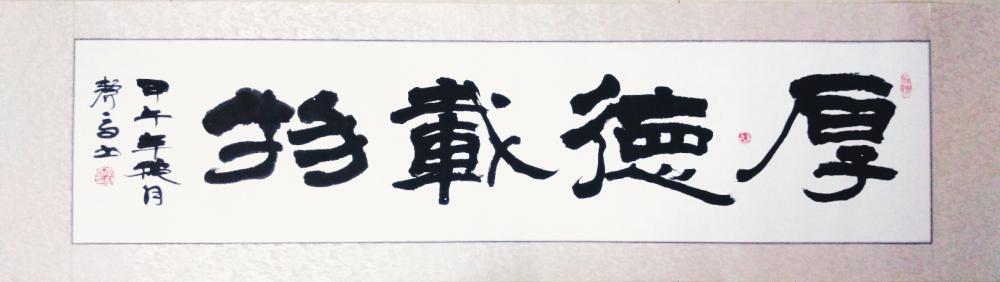 厚德載物
甲午年月
书